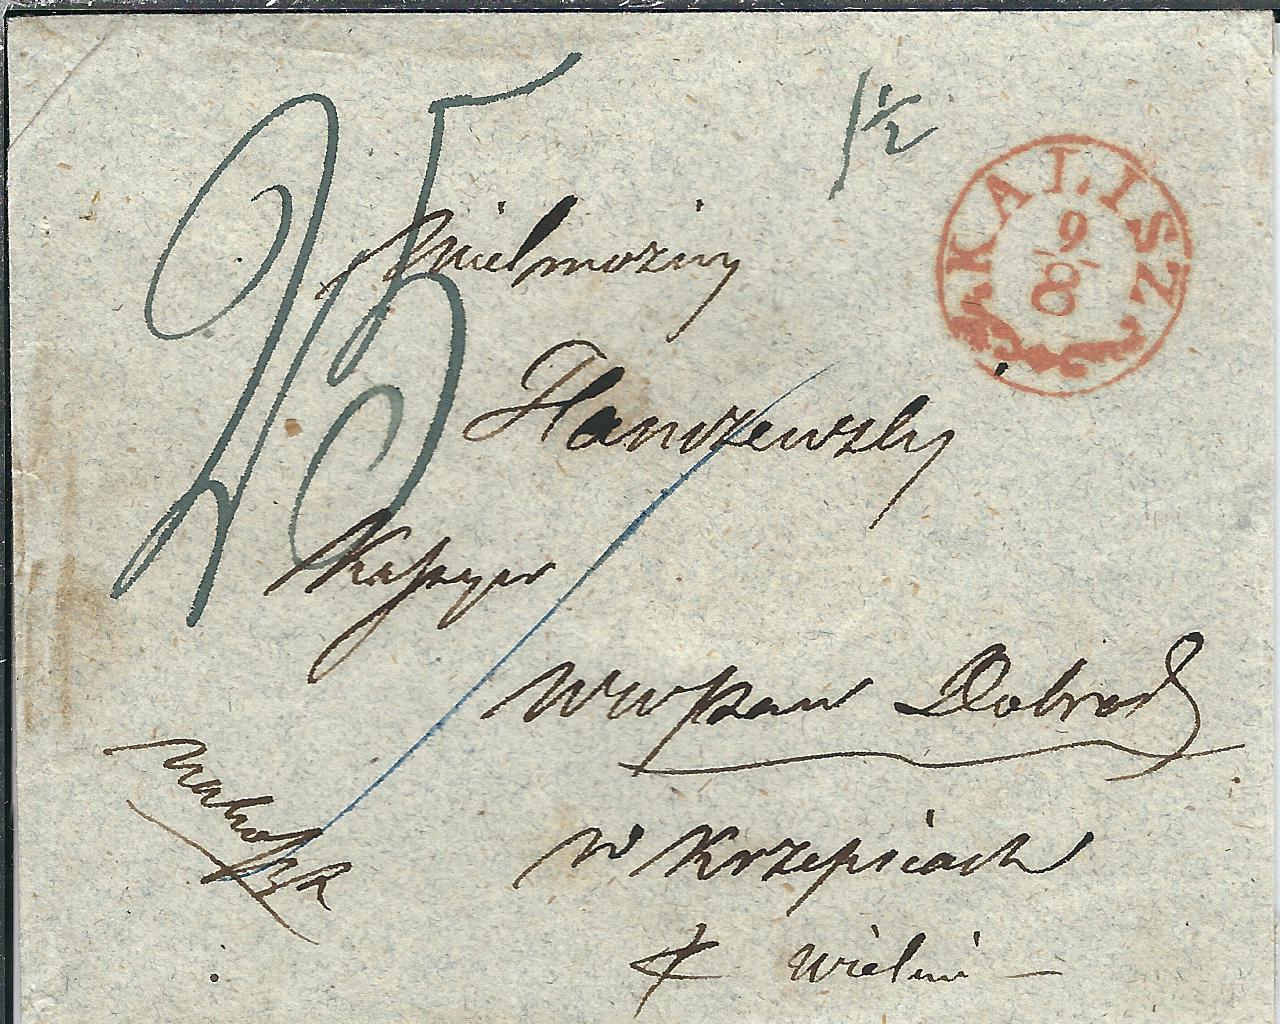 25
1 1/2
KALISZ
9/8
Wielmożny
Hanszewsky
Kassyer
WW Pan Dobrod
w Krzepicach
Wieluń